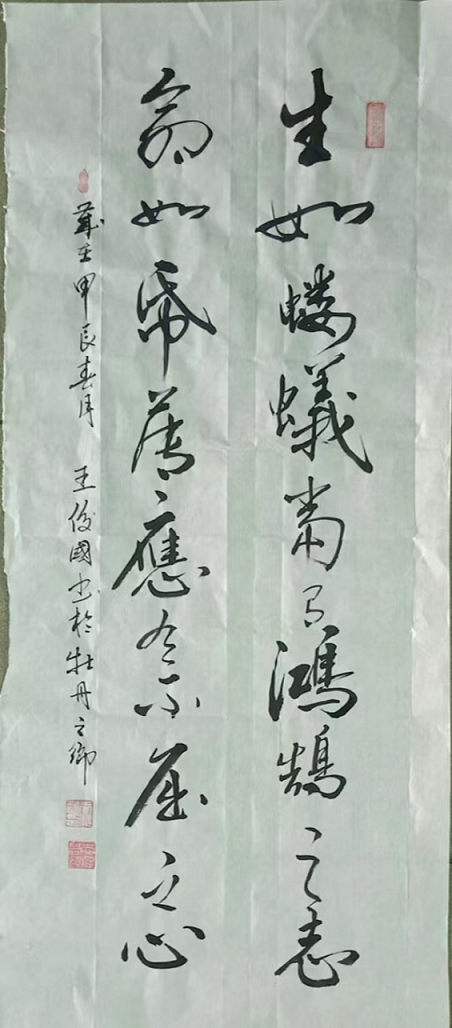 生如螻蟻當有鴻鵠之志
命如帋薄應有不屈之心
歲在甲辰春月 王俊國书於牡丹之鄉